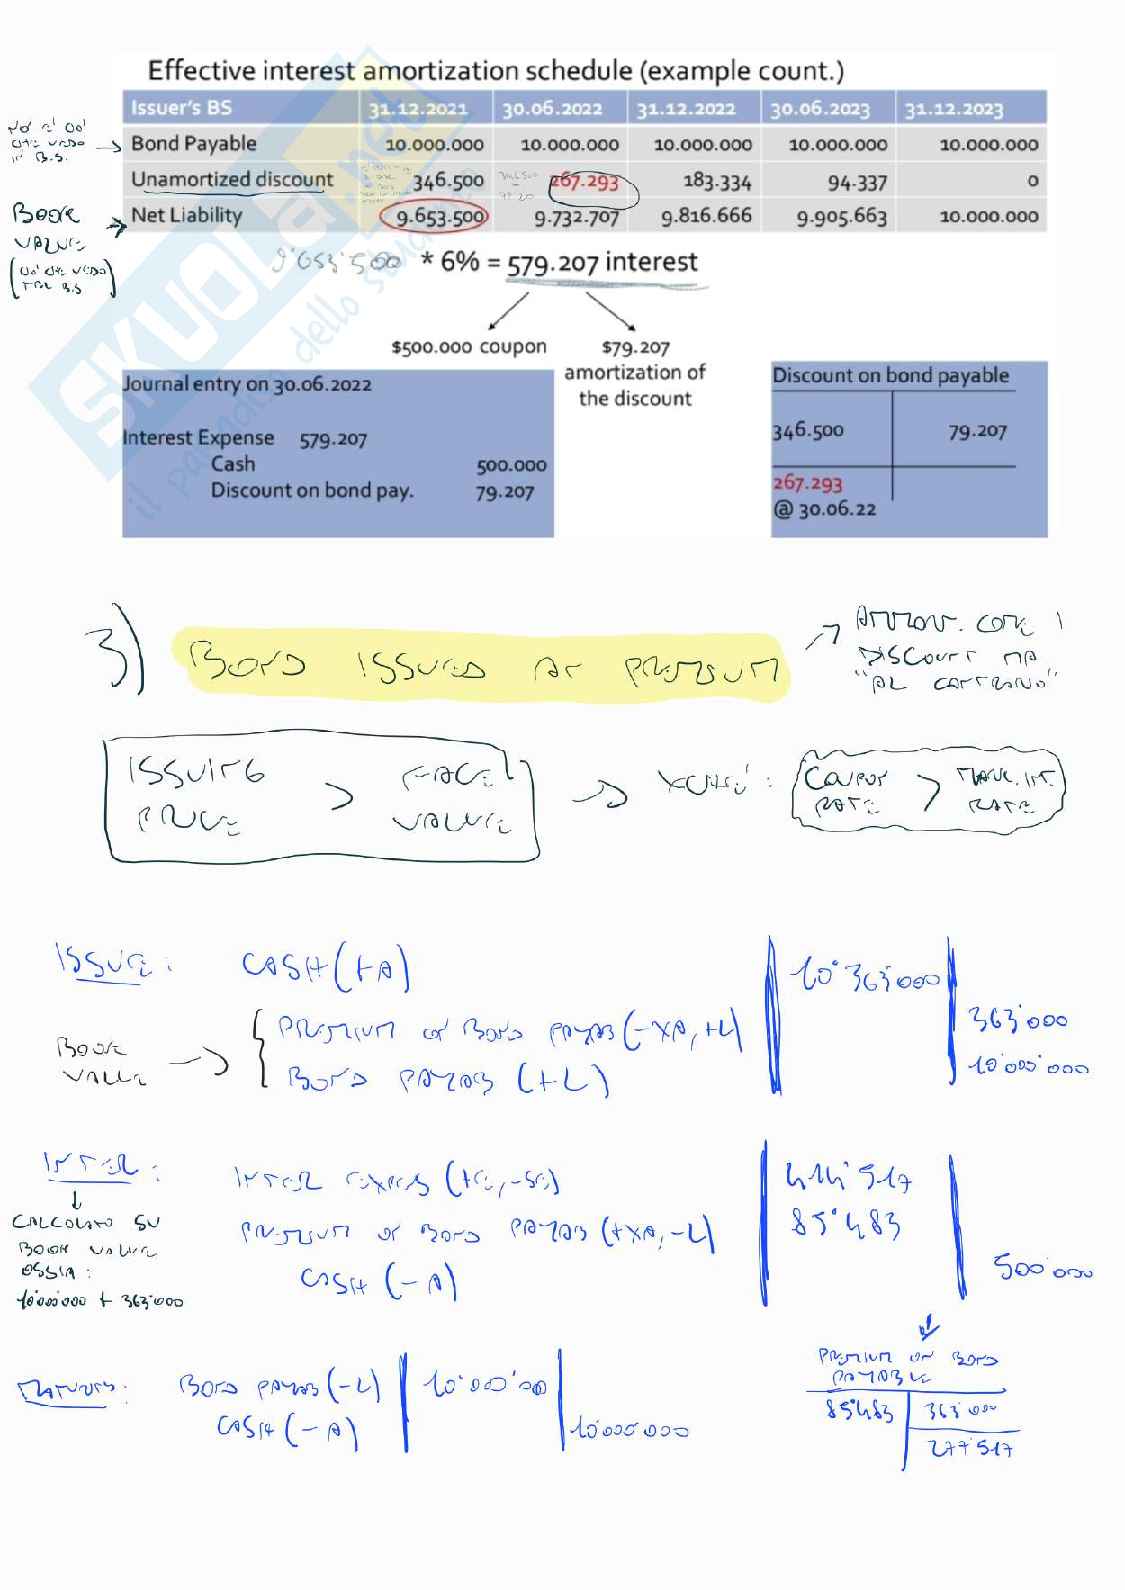 Effective interest amortization schedule (example count.)
Issuer's BS 31.12.2021 30.06.2022 31.12.2022 30.06.2023 31.12.2023
Bond Payable 10.000.000 10.000.000 10.000.000 10.000.000 10.000.000
Unamortized discount 346.500 267.293 183.334 94.337 0
Net Liability 9.653.500 9.732.707 9.816.666 9.905.663 10.000.000
BOOK
VALUE
9'653'500 * 6% = 579.207 interest
$500.000 coupon $79.207
amortization of
the discount
Journal entry on 30.06.2022
Interest Expense 579.207
Cash 500.000
Discount on bond pay. 79.207
Discount on bond payable
346.500 79.207
267.293
@ 30.06.22
SKUOLA.net
il paradiso dello studente
3) BOND ISSUED AT PREMIUM
AMMOR. COME
DISCOUNT MA
"AL CONTRARIO"
ISSUING > FACE
PRICE VALUE
XCHÉ:
COUPON > MARK. INT.
RATE RATE
ISSUE: CASH (+A) 10'363'000
PREMIUM ON BOND PAYAB (-XA, +L) 363'000
BOOK
VALUE
BOND PAYAB (+L) 10'000'000
INTER.: INTER EXPENS (+E, -SE) 414'517
PREMIUM ON BOND PAYAB (+XA, -L) 85'483
CASH (-A) 500'000
CALCOLATO SU
BOOK VALUE
OSSIA:
10'000'000 + 363'000
MATURITY: BOND PAYAB (-L) 10'000'000
CASH (-A) 10'000'000
PREMIUM ON BOND
PAYABLE
85'483 363'000
277'517